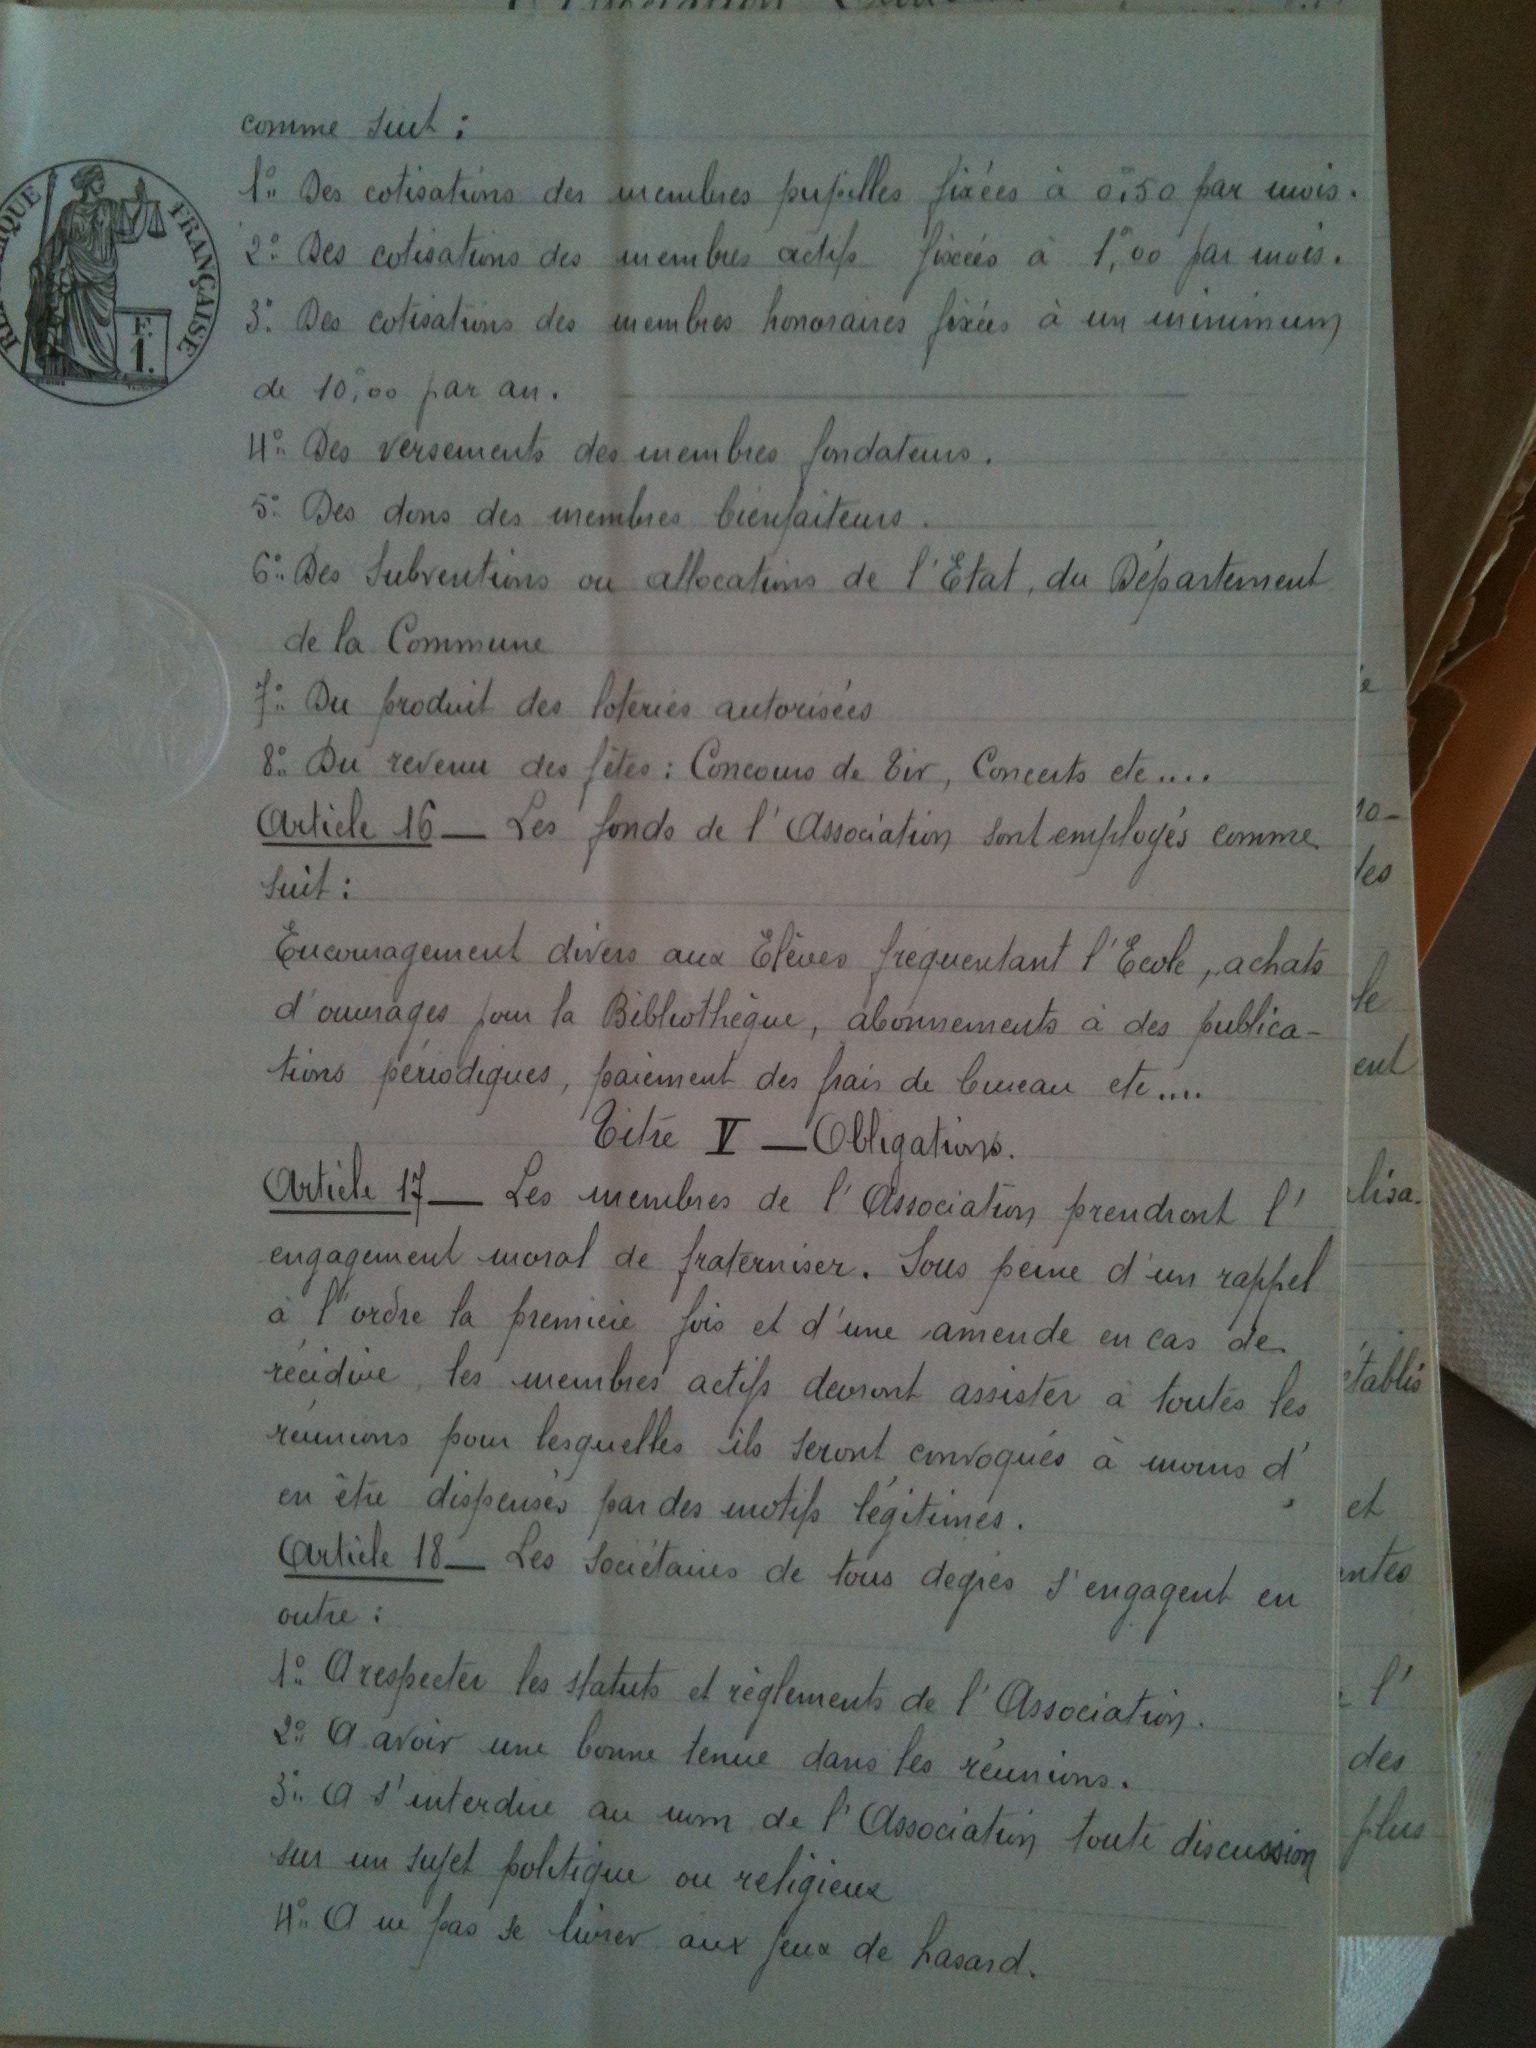 comme suit :
1° Des cotisations des membres pupilles fixées à 0,50 par mois.
2° Des cotisations des membres actifs fixées à 1,00 par mois.
3° Des cotisations des membres honoraires fixées à un minimum
de 10,00 par an.
4° Des versements des membres fondateurs.
5° Des dons des membres bienfaiteurs.
6° Des Subventions ou allocations de l'Etat, du Département
de la Commune
7° Du produit des loteries autorisées
8° Du revenu des fêtes : Concours de Tir, Concerts etc....
Article 16 — Les fonds de l'Association sont employés comme
suit :
Encouragement divers aux Elèves fréquentant l'Ecole, achats
d'ouvrages pour la Bibliothèque, abonnements à des publica-
tions périodiques, paiement des frais de bureau etc....
Titre V — Obligations.
Article 17 — Les membres de l'Association prendront l'
engagement moral de fraterniser. Sous peine d'un rappel
à l'ordre la première fois et d'une amende en cas de
récidive, les membres actifs devront assister à toutes les
réunions pour lesquelles ils seront convoqués à moins d'
en être dispensés par des motifs légitimes.
Article 18 — Les Sociétaires de tous degrés s'engagent en
outre :
1° A respecter les statuts et règlements de l'Association.
2° A avoir une bonne tenue dans les réunions.
3° A s'interdire au nom de l'Association toute discussion
sur un sujet politique ou religieux
4° A ne pas se livrer aux jeux de hasard.
RÉPUBLIQUE FRANÇAISE
F.
1.
les
le
ent
lisa-
établis
et
antes
l'
des
plus